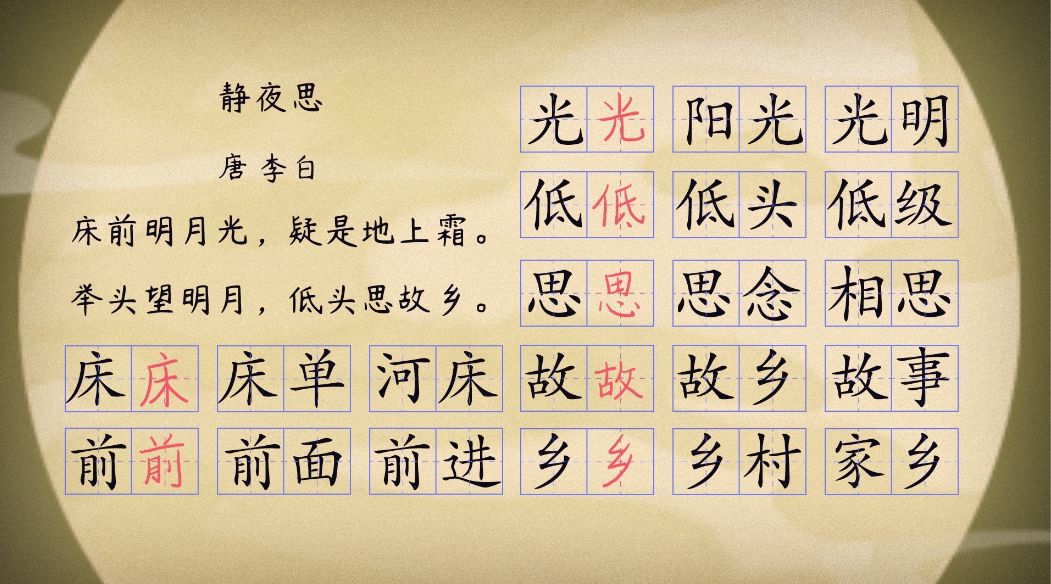 静夜思
唐 李白
床前明月光，疑是地上霜。
举头望明月，低头思故乡。
光光 阳光 光明
低低 低头 低级
思思 思念 相思
床床 床单 河床 故故 故乡 故事
前前 前面 前进 乡乡 乡村 家乡